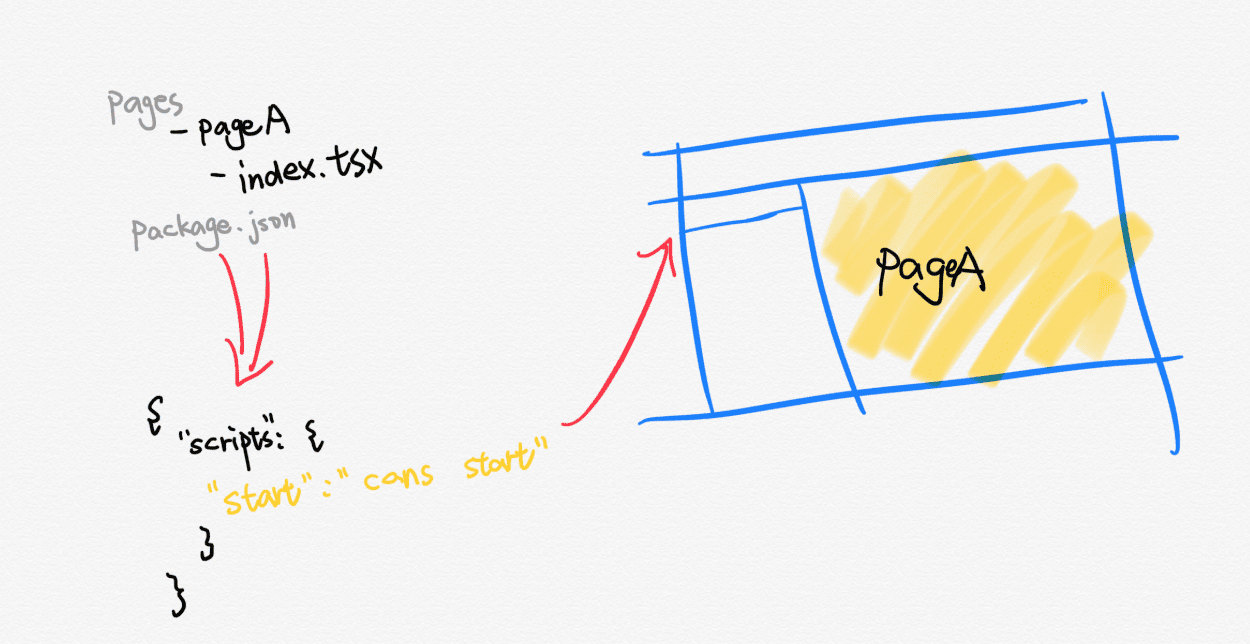 pages
- pageA
- index.tsx
package.json
{
"scripts": {
"start":" cans start"
}
}
PageA